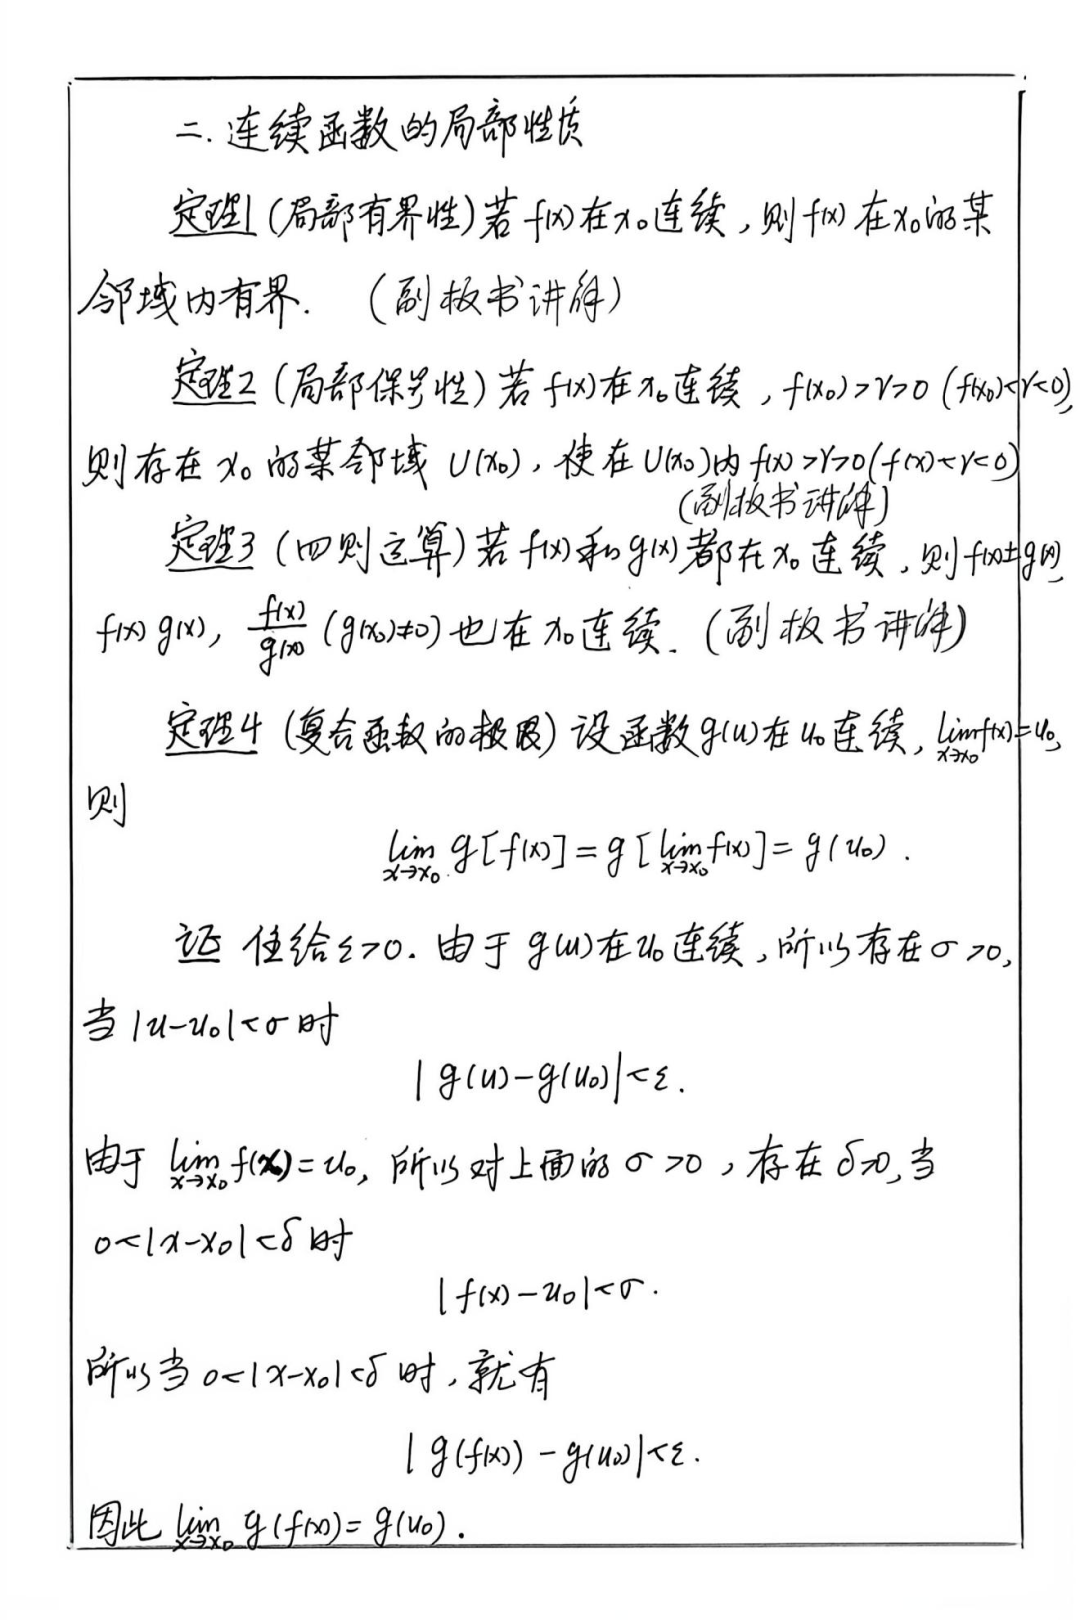 二.连续函数的局部性质
定理1(局部有界性)若f(x)在x₀连续,则f(x)在x₀的某
邻域内有界. (副板书讲解)
定理2(局部保号性)若f(x)在x₀连续,f(x₀)>r>0(f(x₀)<r<0),
则存在x₀的某邻域U(x₀),使在U(x₀)内f(x)>r>0(f(x)<r<0)
(副板书讲解)
定理3(四则运算)若f(x)和g(x)都在x₀连续,则f(x)±g(x),
f(x)g(x), f(x)/g(x) (g(x₀)≠0)也在x₀连续.(副板书讲解)
定理4(复合函数的极限)设函数g(u)在u₀连续, lim_{x→x₀} f(x)=u₀,
则
lim_{x→x₀} g[f(x)]=g[lim_{x→x₀} f(x)]=g(u₀).
证 任给ε>0.由于g(u)在u₀连续,所以存在σ>0,
当|u-u₀|<σ时
|g(u)-g(u₀)|<ε.
由于 lim_{x→x₀} f(x)=u₀, 所以对上面的σ>0,存在δ>0,当
0<|x-x₀|<δ时
|f(x)-u₀|<σ.
所以当0<|x-x₀|<δ时,就有
|g(f(x))-g(u₀)|<ε.
因此 lim_{x→x₀} g(f(x))=g(u₀).